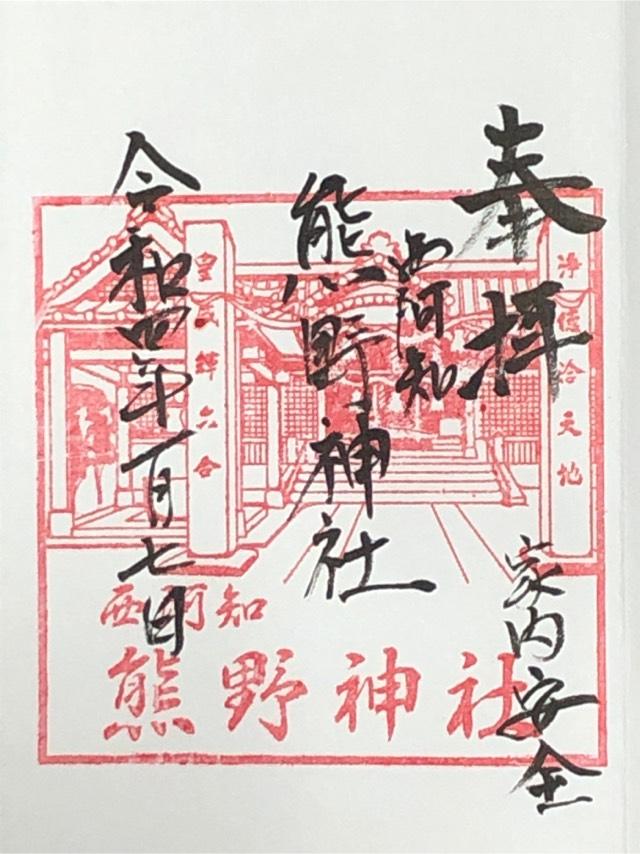 奉拝
家内安全
西阿知
熊野神社
令和四年一月七日
浄
洽天地
皇
輝六合
西阿知
熊野神社